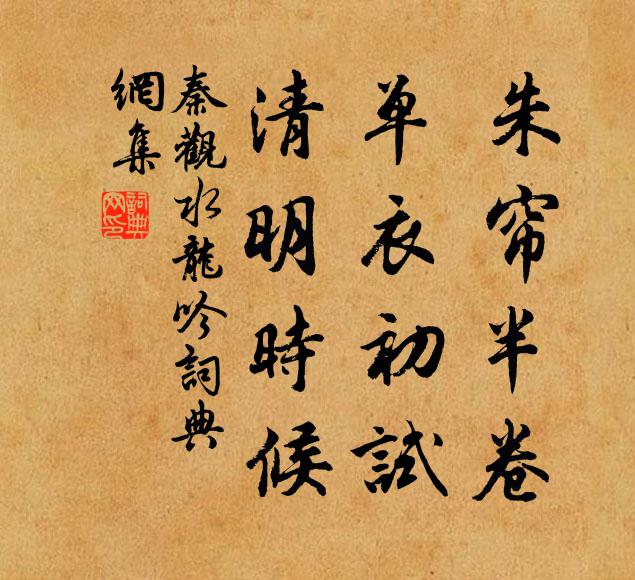 朱帘半卷
单衣初試
清明時候
秦觀水龍吟詞典
網集
詞典
网印